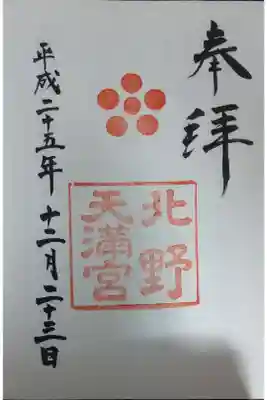 奉拝
北野
天満宮
平成二十五年 十二月二十三日